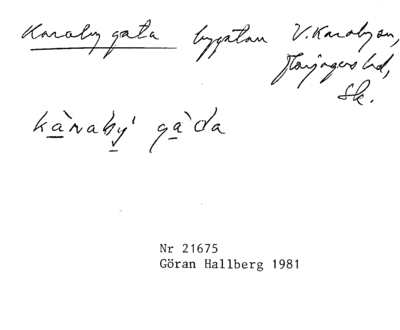 Karaby gata bygatan V. Karabyson,
härads hd,
Sk.
kàraby' gàda
Nr 21675
Göran Hallberg 1981